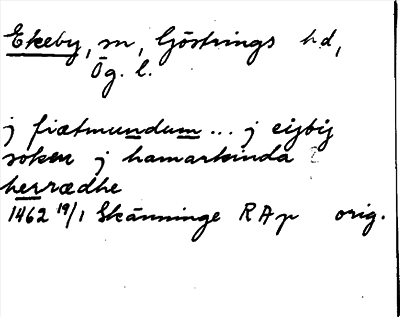 Ekeby, sn, Göstrings hd,
Ög. l.
j fiætmundum ... j eijbij
soken j hamarkinda
herrædhe
1462 19/1 Skänninge RAp orig.